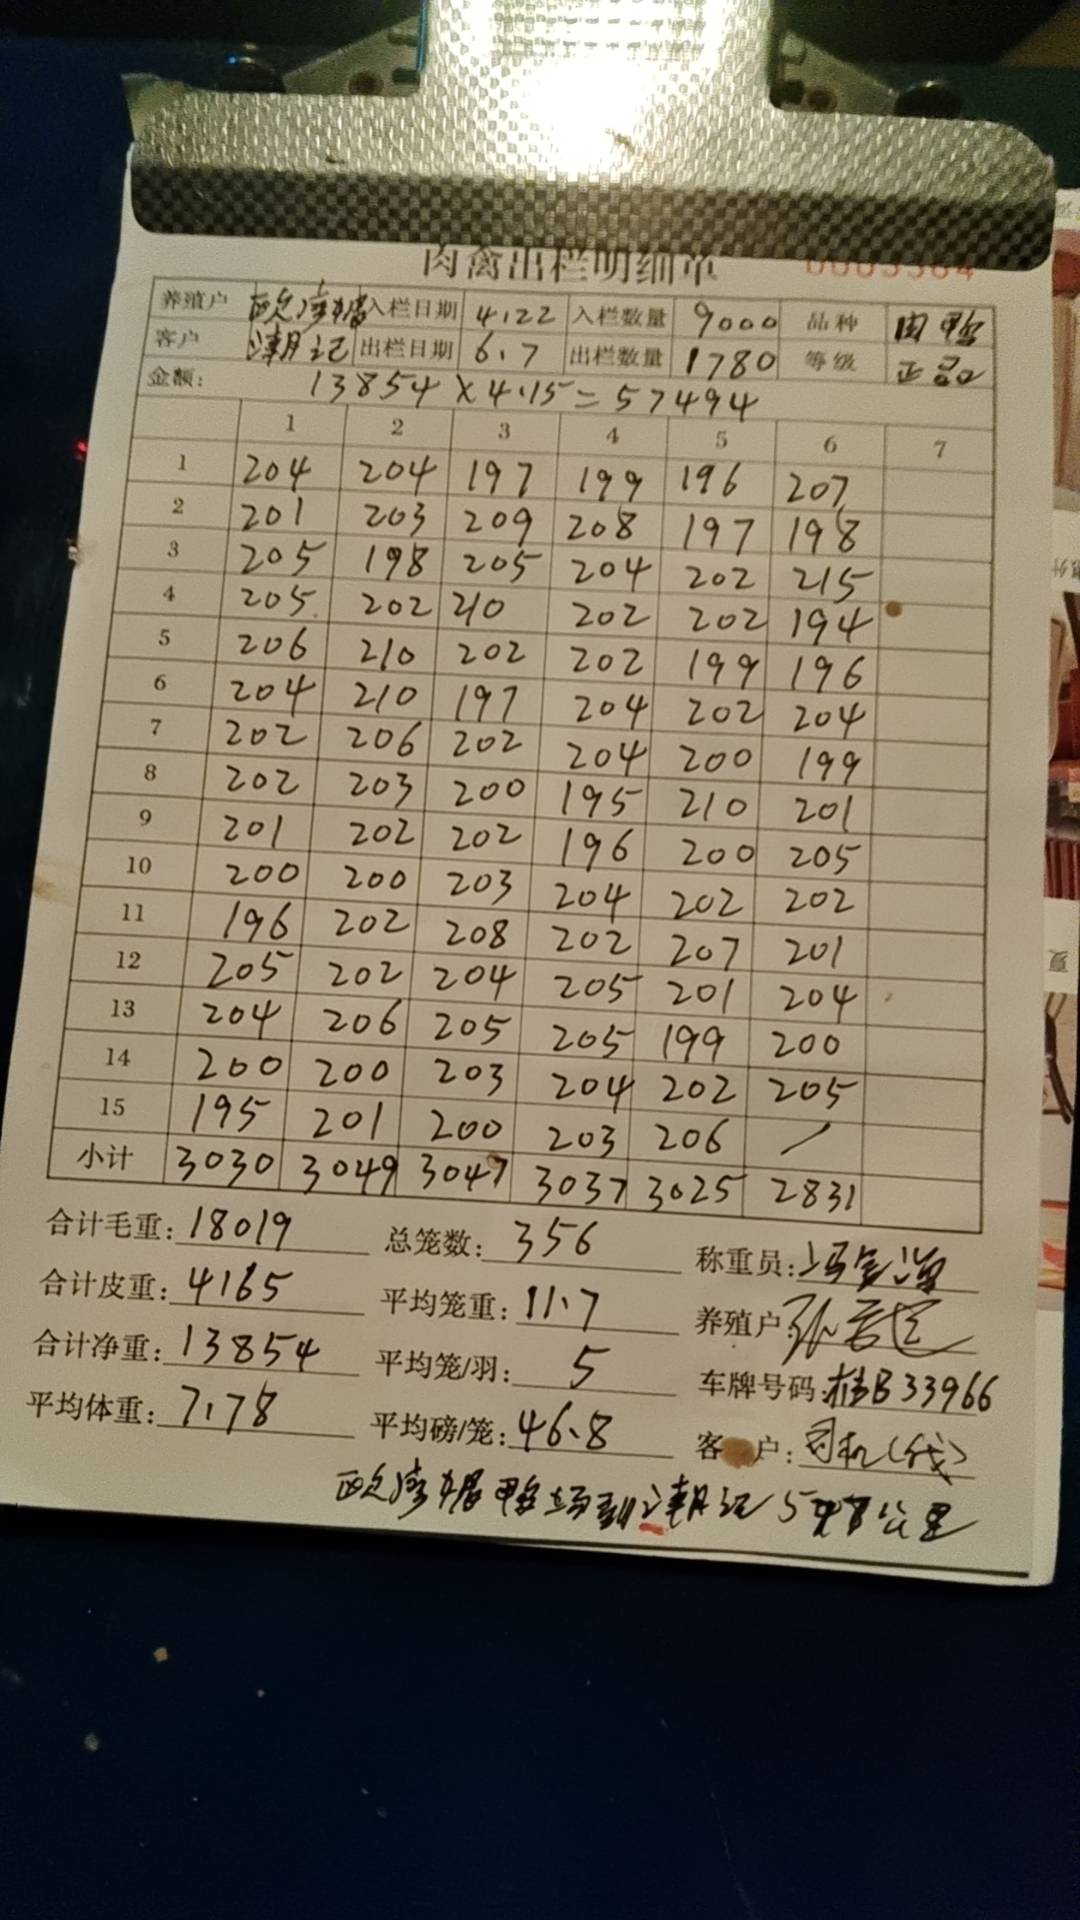 肉禽出栏明细单 0005564
养殖户 入栏日期 4.22 入栏数量 9000 品种 肉鸭
客户 潮记 出栏日期 6.7 出栏数量 1780 等级 正品
金额: 13854 × 4.15 = 57494
1 2 3 4 5 6 7
1 204 204 197 199 196 207
2 201 203 209 208 197 198
3 205 198 205 204 202 215
4 205 202 210 202 202 194
5 206 210 202 202 199 196
6 204 210 197 204 202 204
7 202 206 202 204 200 199
8 202 203 200 195 210 201
9 201 202 202 196 200 205
10 200 200 203 204 202 202
11 196 202 208 202 207 201
12 205 202 204 205 201 204
13 204 206 205 205 199 200
14 200 200 203 204 202 205
15 195 201 200 203 206 /
小计 3030 3049 3047 3037 3025 2831
合计毛重: 18019 总笼数: 356 称重员:
合计皮重: 4165 平均笼重: 11.7 养殖户
合计净重: 13854 平均笼/羽: 5 车牌号码: 桂B33966
平均体重: 7.78 平均磅/笼: 46.8 客户: 司机(代)
鸭场到潮记 公里